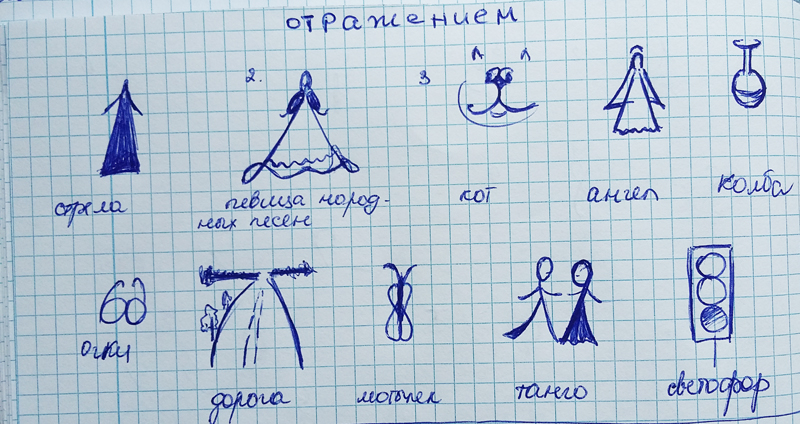 отражением
2.
3
стрела
певица народ-
ных песен
кот
ангел
колба
очки
дорога
мотылек
танго
светофор